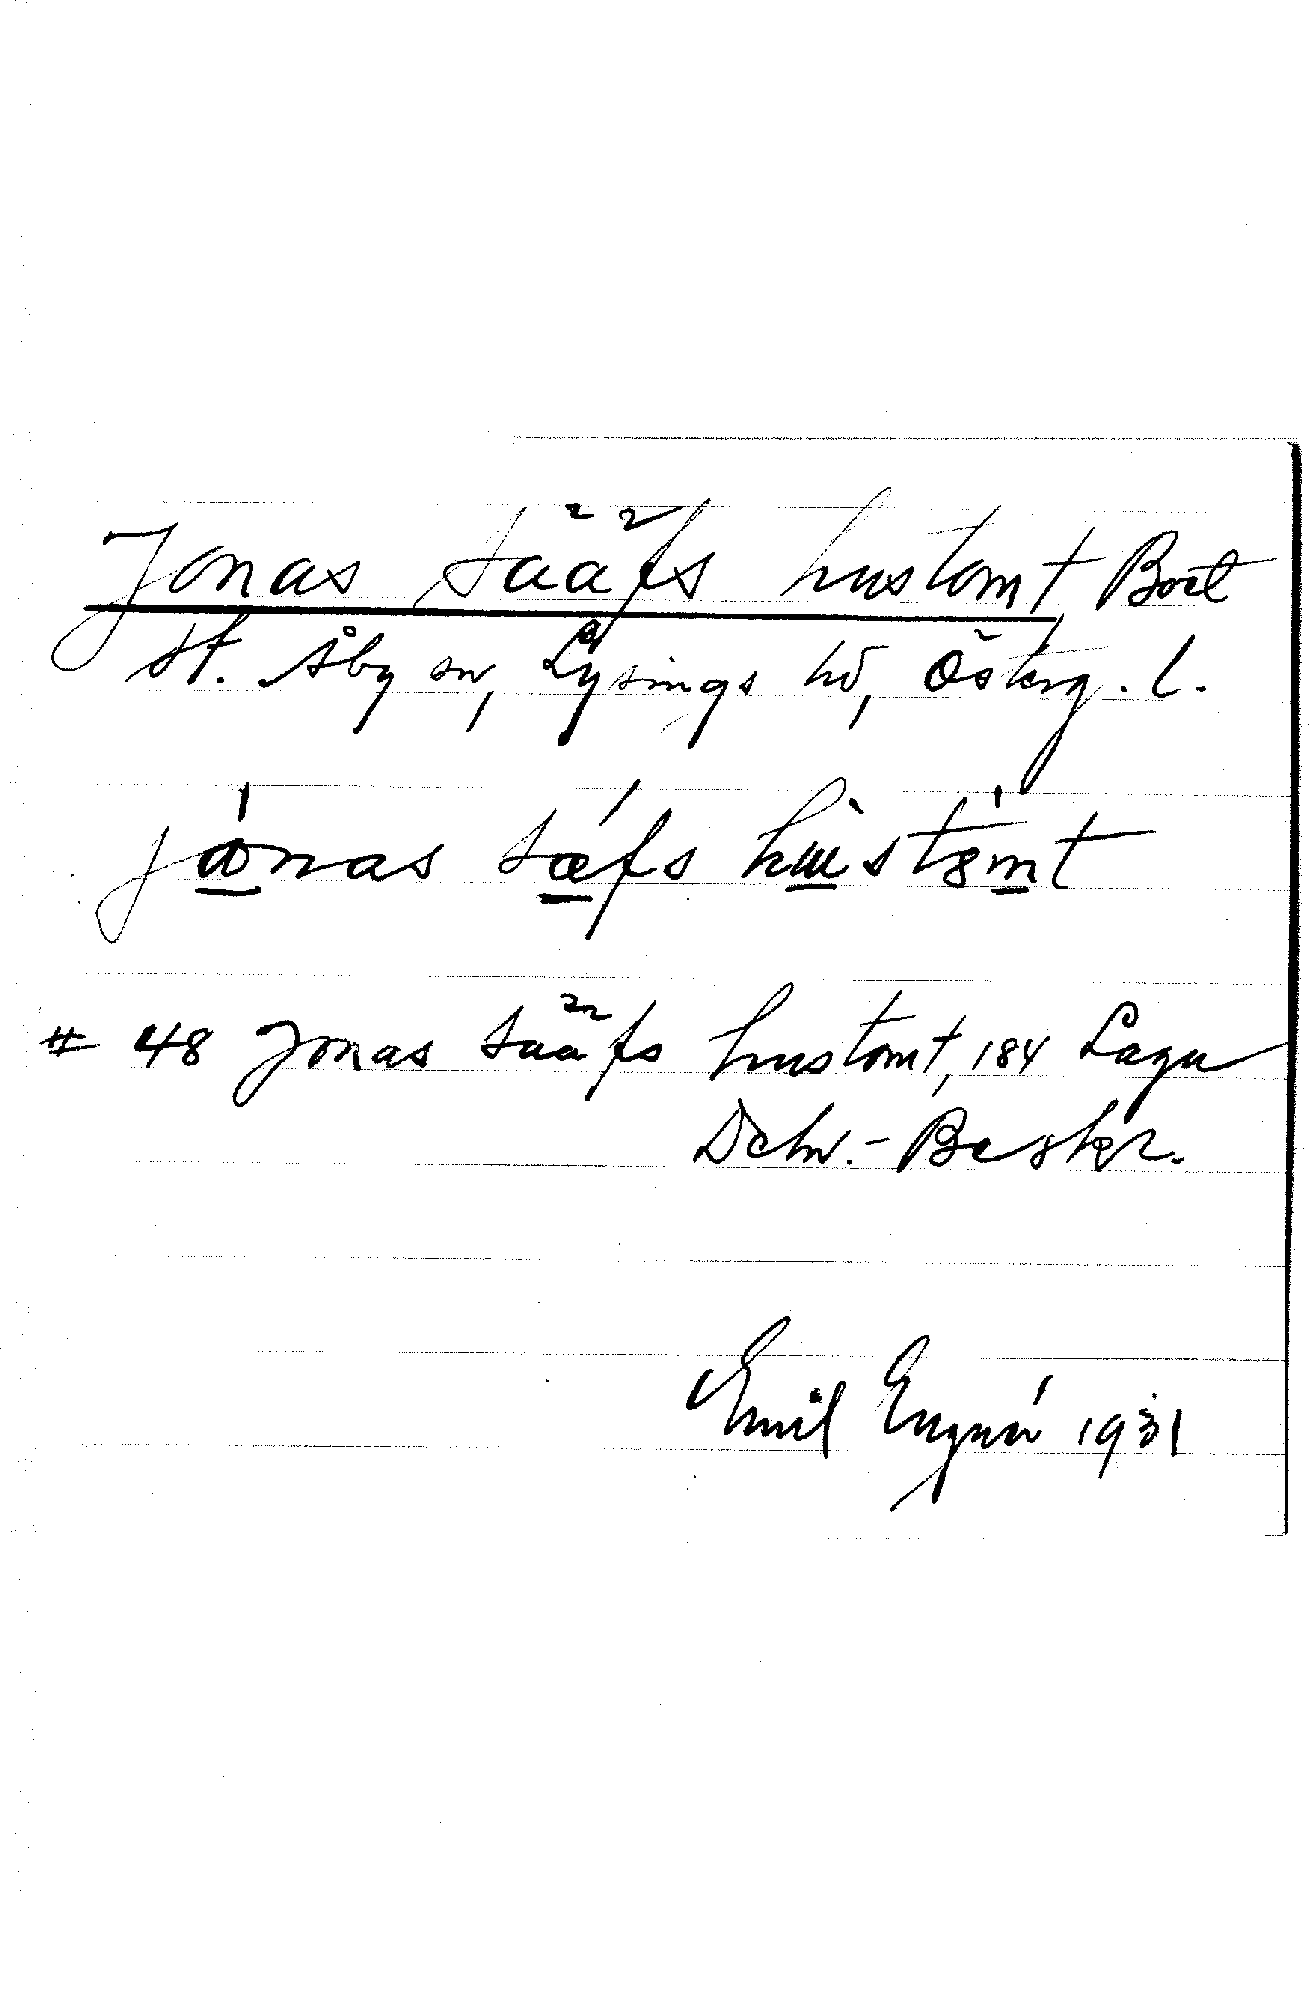 Jonas Sääfs hustomt Bort
St. Åby sn, Lysings hd, Österg. l.
jónas sǽfs hùstómt
# 48 Jonas Sääfs hustomt, 184 Laga
Deln.-Beskr.
Emil 1931